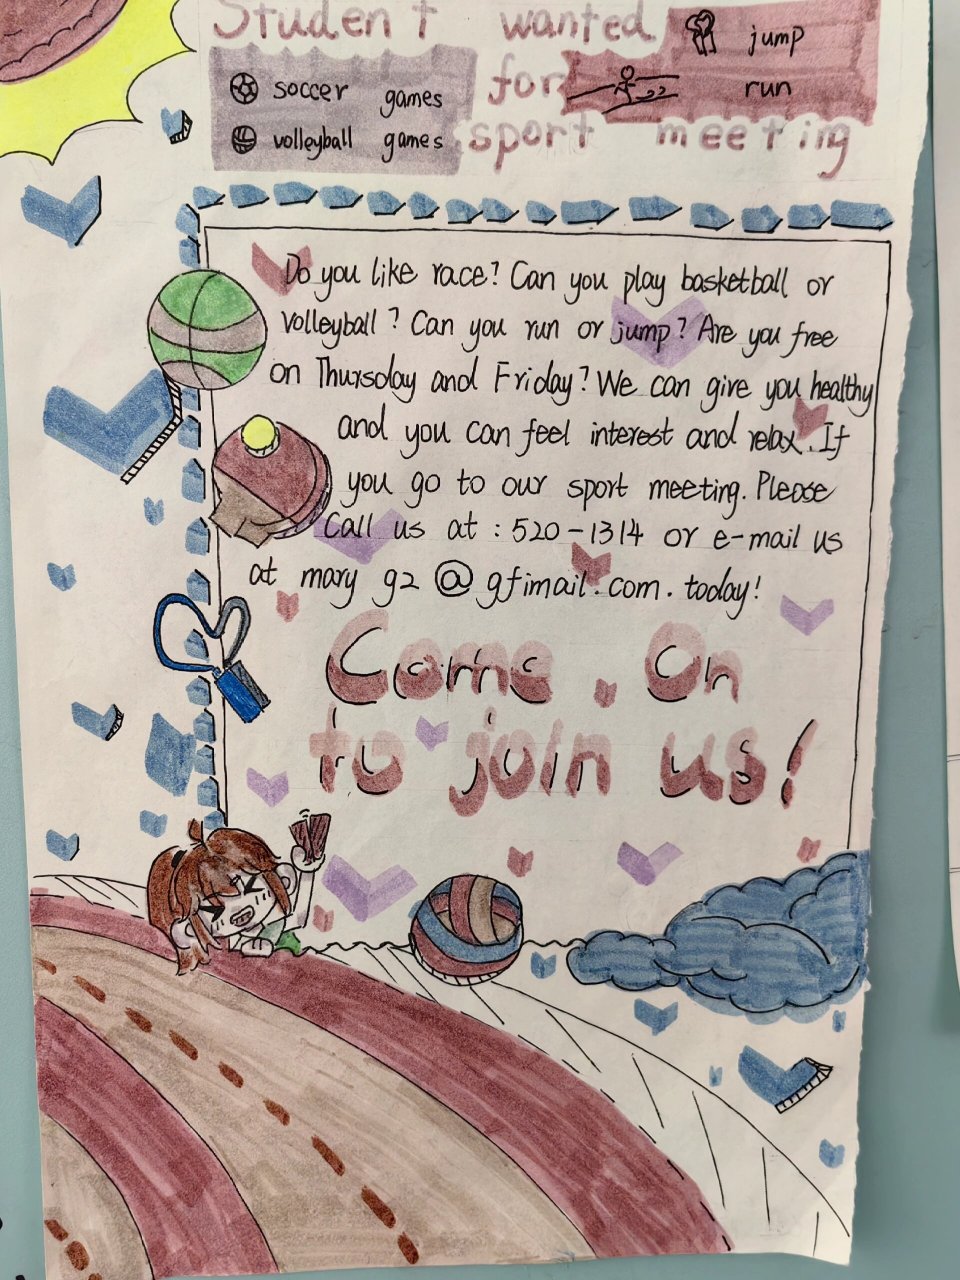 Student wanted
for
sport meeting
soccer games
volleyball games
jump
run
Do you like race? Can you play basketball or
volleyball? Can you run or jump? Are you free
on Thursday and Friday? We can give you healthy
and you can feel interest and relax. If
you go to our sport meeting. Please
Call us at : 520-1314 or e-mail us
at mary g2 @ gfimail.com. today!
Come. On
to join us!